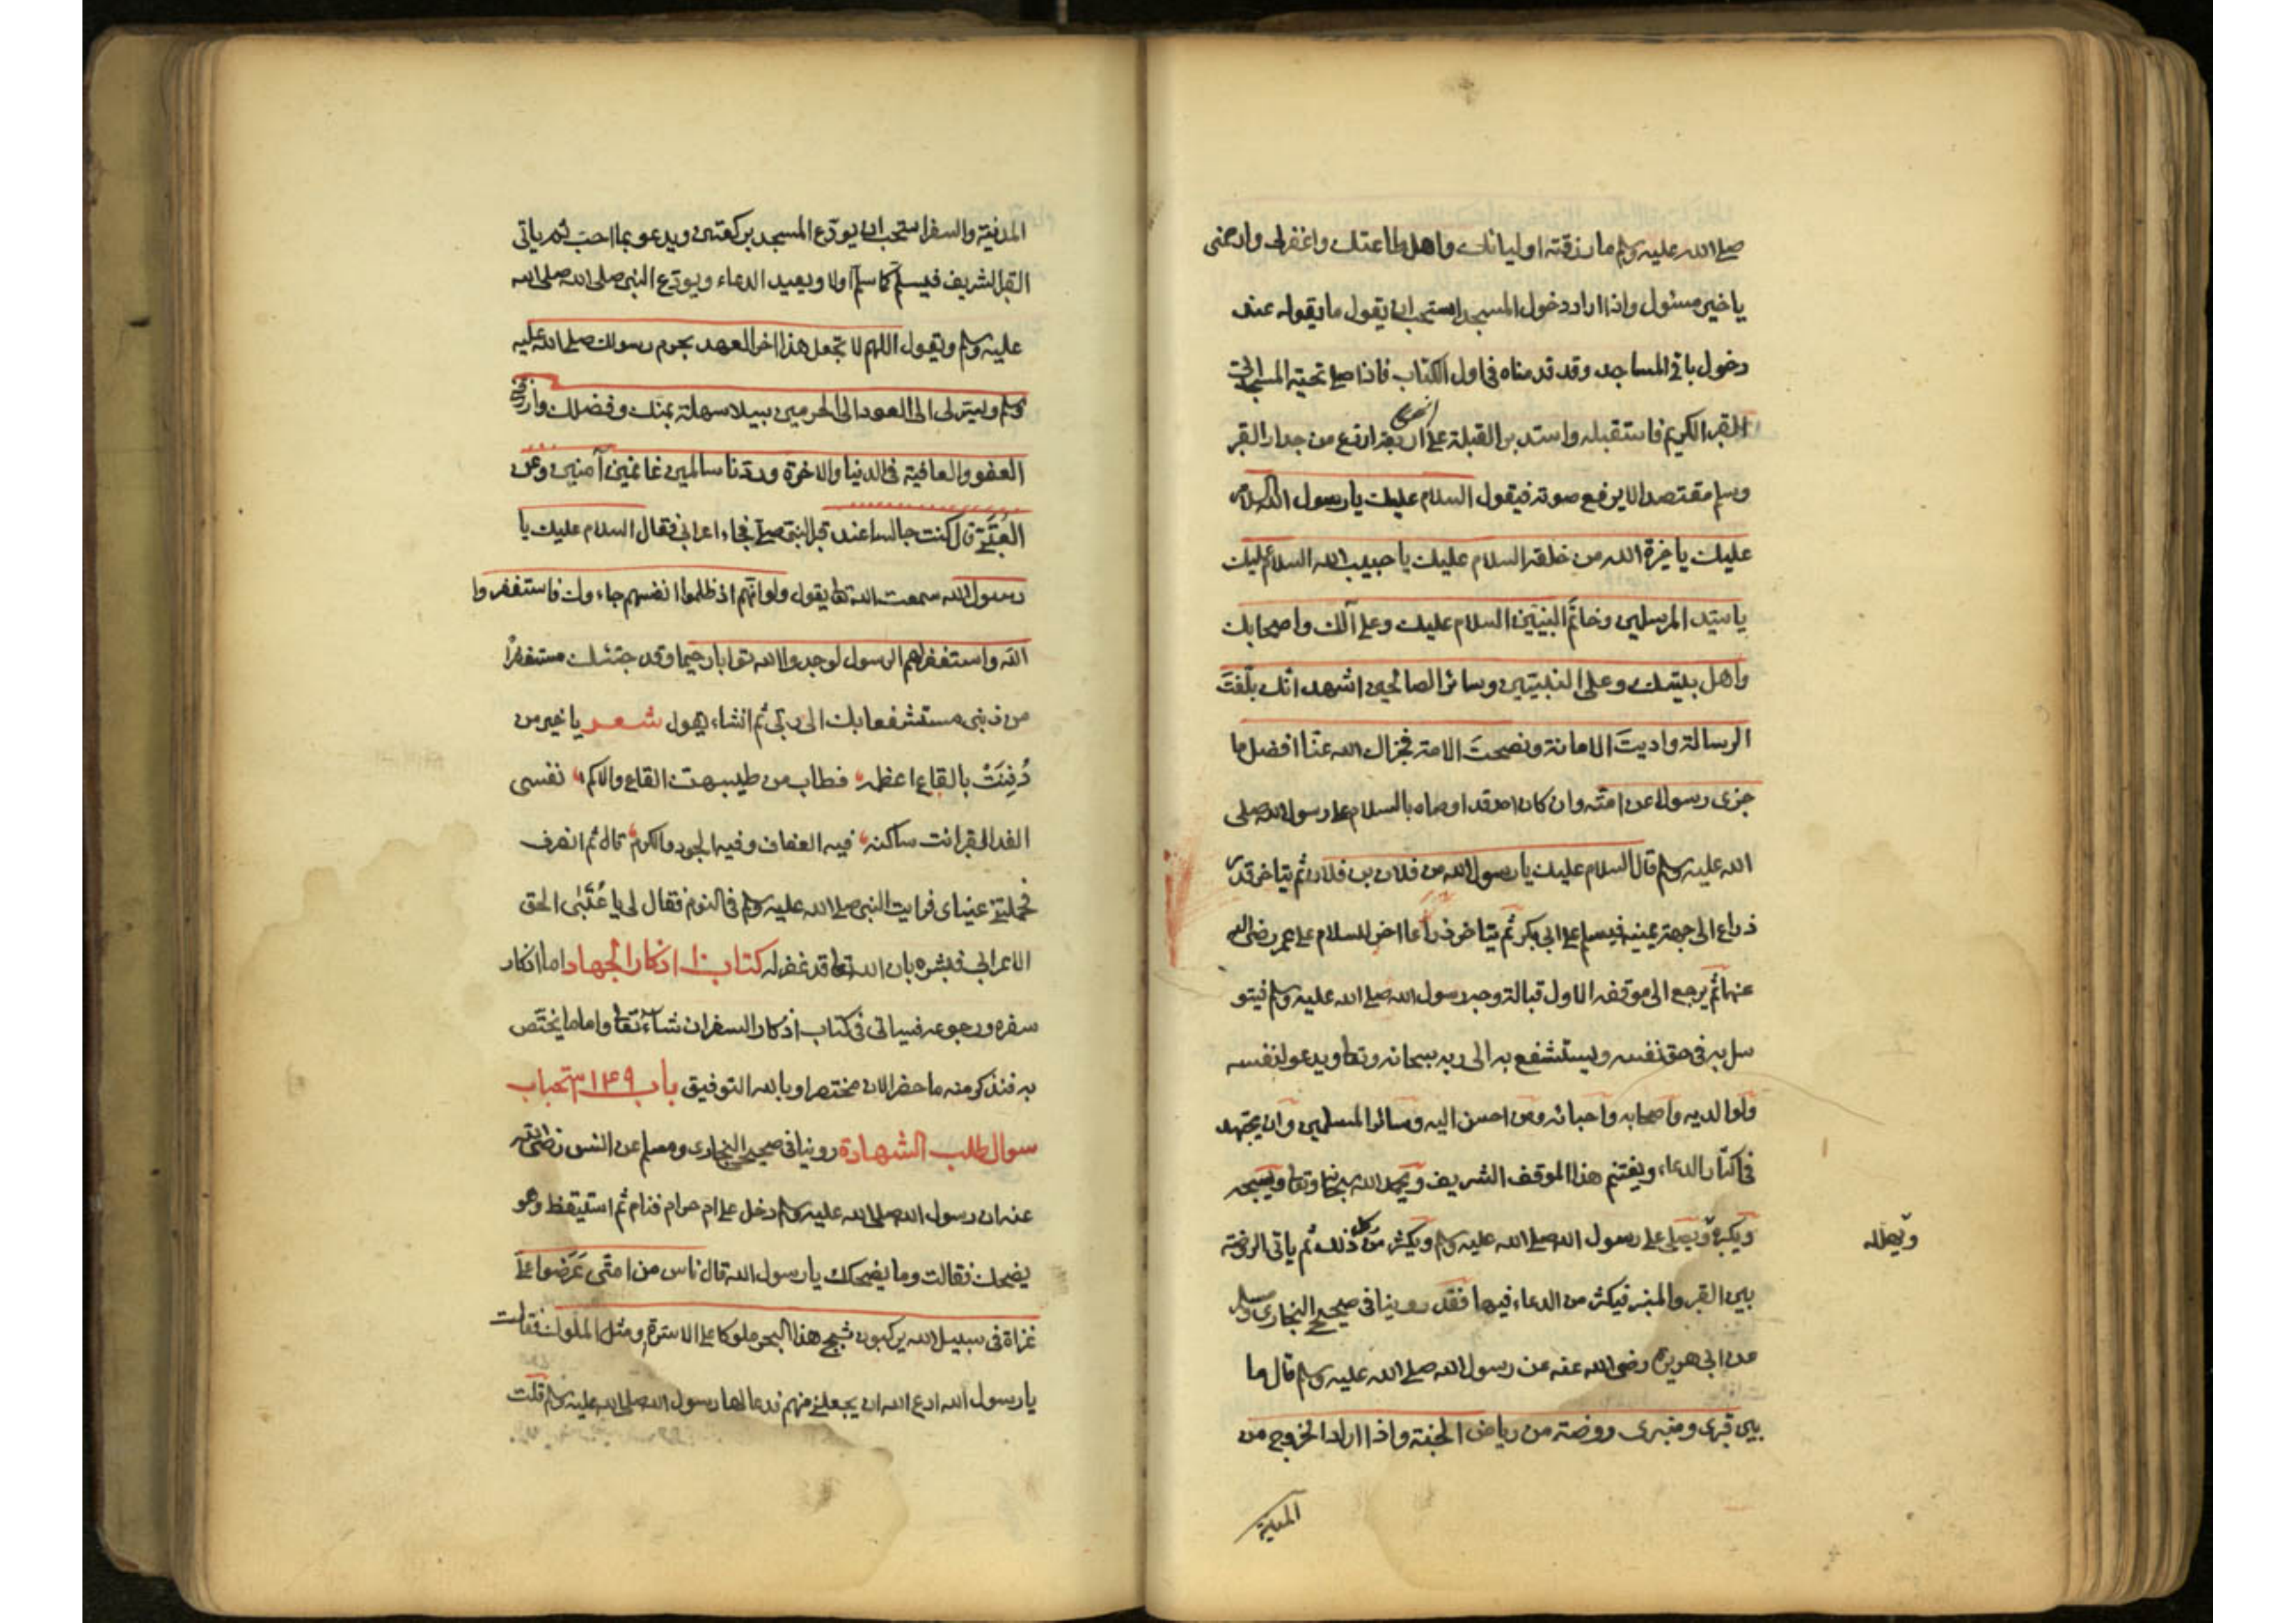 صلى الله عليه وسلم ما رزقته اولياءك واهل طاعتك واغفر لى وارحمنى
يا خير مسئول واذا اراد دخول المسجد استحب ان يقول ما يقوله عند
دخول باقى المساجد وقد قدمناه فى اول الكتاب فاذا صلى تحية المسجد اتى
القبر الكريم فاستقبله واستدبر القبلة على اربع اذرع من جدار القبر
وسلم مقتصدا لا يرفع صوته فيقول السلام عليك يا رسول الله السلام
عليك يا خيرة الله من خلقه السلام عليك يا حبيب الله السلام عليك
يا سيد المرسلين وخاتم النبيين السلام عليك وعلى آلك واصحابك
واهل بيتك وعلى النبيين وسائر الصالحين اشهد انك بلّغتَ
الرسالة واديتَ الامانة ونصحتَ الامة فجزاك الله عنا افضل ما
جزى رسولا عن امته وان كان احد قد اوصاه بالسلام على رسول الله صلى
الله عليه وسلم قال السلام عليك يا رسول الله من فلان بن فلان ثم يتاخر قدر
ذراع الى جهة يمينه فيسلم على ابى بكر ثم يتاخر ذراعا اخر للسلام على عمر رضى الله
عنهما ثم يرجع الى موقفه الاول قبالة وجه رسول الله صلى الله عليه وسلم فيتو
سل به فى حق نفسه ويستشفع به الى ربه سبحانه وتعا ويدعو لنفسه
ولوالديه واصحابه واحبائه ومن احسن اليه وسائر المسلمين وان يجتهد
فى اكثار الدعاء ويغتنم هذا الموقف الشريف ويحمد الله سبحانه وتعا ويسبحه
ويكبره ويصلى على رسول الله صلى الله عليه وسلم ويكثر من كل ذلك ثم ياتى الروضة
ويهلله
بين القبر والمنبر فيكثر من الدعاء فيها فقد روينا فى صحيحى البخارى ومسلم
عن ابى هريرة رضى الله عنه عن رسول الله صلى الله عليه وسلم قال ما
بين قبرى ومنبرى روضة من رياض الجنة واذا اراد الخروج من
المدينة
المدينة والسفر استحب ان يودّع المسجد بركعتين ويدعو بما احب ثم ياتى
القبر الشريف فيسلم كما سلم اولا ويعيد الدعاء ويودّع النبى صلى الله صلى الله
عليه وسلم ويقول اللهم لا تجعل هذا اخر العهد بحرم رسولك صلى الله عليه
وسلم ويسّر لى الى العود الى الحرمين سبيلا سهلة بمنك وفضلك وارزقنى
العفو والعافية فى الدنيا والاخرة وردّنا سالمين غانمين آمنين وعن
العُتْبىّ قال كنت جالسا عند قبر النبى صلعم فجاء اعرابى فقال السلام عليك يا
رسول الله سمعت الله تعا يقول ولو انهم اذ ظلموا انفسهم جاءوك فاستغفروا
الله واستغفر لهم الرسول لوجدوا الله توابا رحيما وقد جئتك مستغفرًا
من ذنبى مستشفعا بك الى ربّى ثم انشاء يقول شعر يا خير من
دُفِنَتْ بالقاع اعظمه فطاب من طيبهن القاع والاكم نفسى
الفدا لقبر انت ساكنه فيه العفاف وفيه الجود والكرم قال ثم انصرف
فحملتنى عيناى فرايت النبى صلى الله عليه وسلم فى النوم فقال لى يا عُتْبىُ الحق
الاعرابى فبشره بان الله تعا قد غفر له كتاب اذكار الجهاد اما اذكار
سفره ورجوعه فسياتى فى كتاب اذكار السفر ان شاء تعا واما ما يختص
به فنذكر منه ما حضر الان مختصرا وبالله التوفيق باب ١٤٩ استحباب
سوال طلب الشهادة روينا فى صحيحى البخارى ومسلم عن انس رضى الله
عنه ان رسول الله صلى الله عليه وسلم دخل على ام حرام فنام ثم استيقظ وهو
يضحك فقالت وما يضحكك يا رسول الله قال ناس من امتى عَرَضوا علىّ
غزاة فى سبيل الله يركبون ثبج هذا البحر ملوكا على الاسرة ومثل الملوك فقالت
يا رسول الله ادع الله ان يجعلنى منهم فدعا لها رسول الله صلى الله عليه وسلم قلت